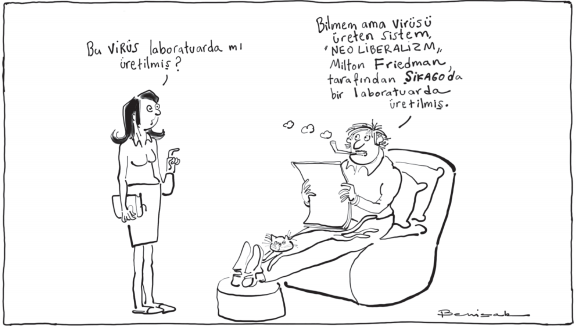 Bu VİRÜS laboratuarda mı
üretilmiş?
Bilmem ama virüsü
üreten sistem,
"NEO LİBERALİZM",
Milton Friedman,
tarafından ŞİKAGO'da
bir laboratuarda
üretilmiş.
Benisak